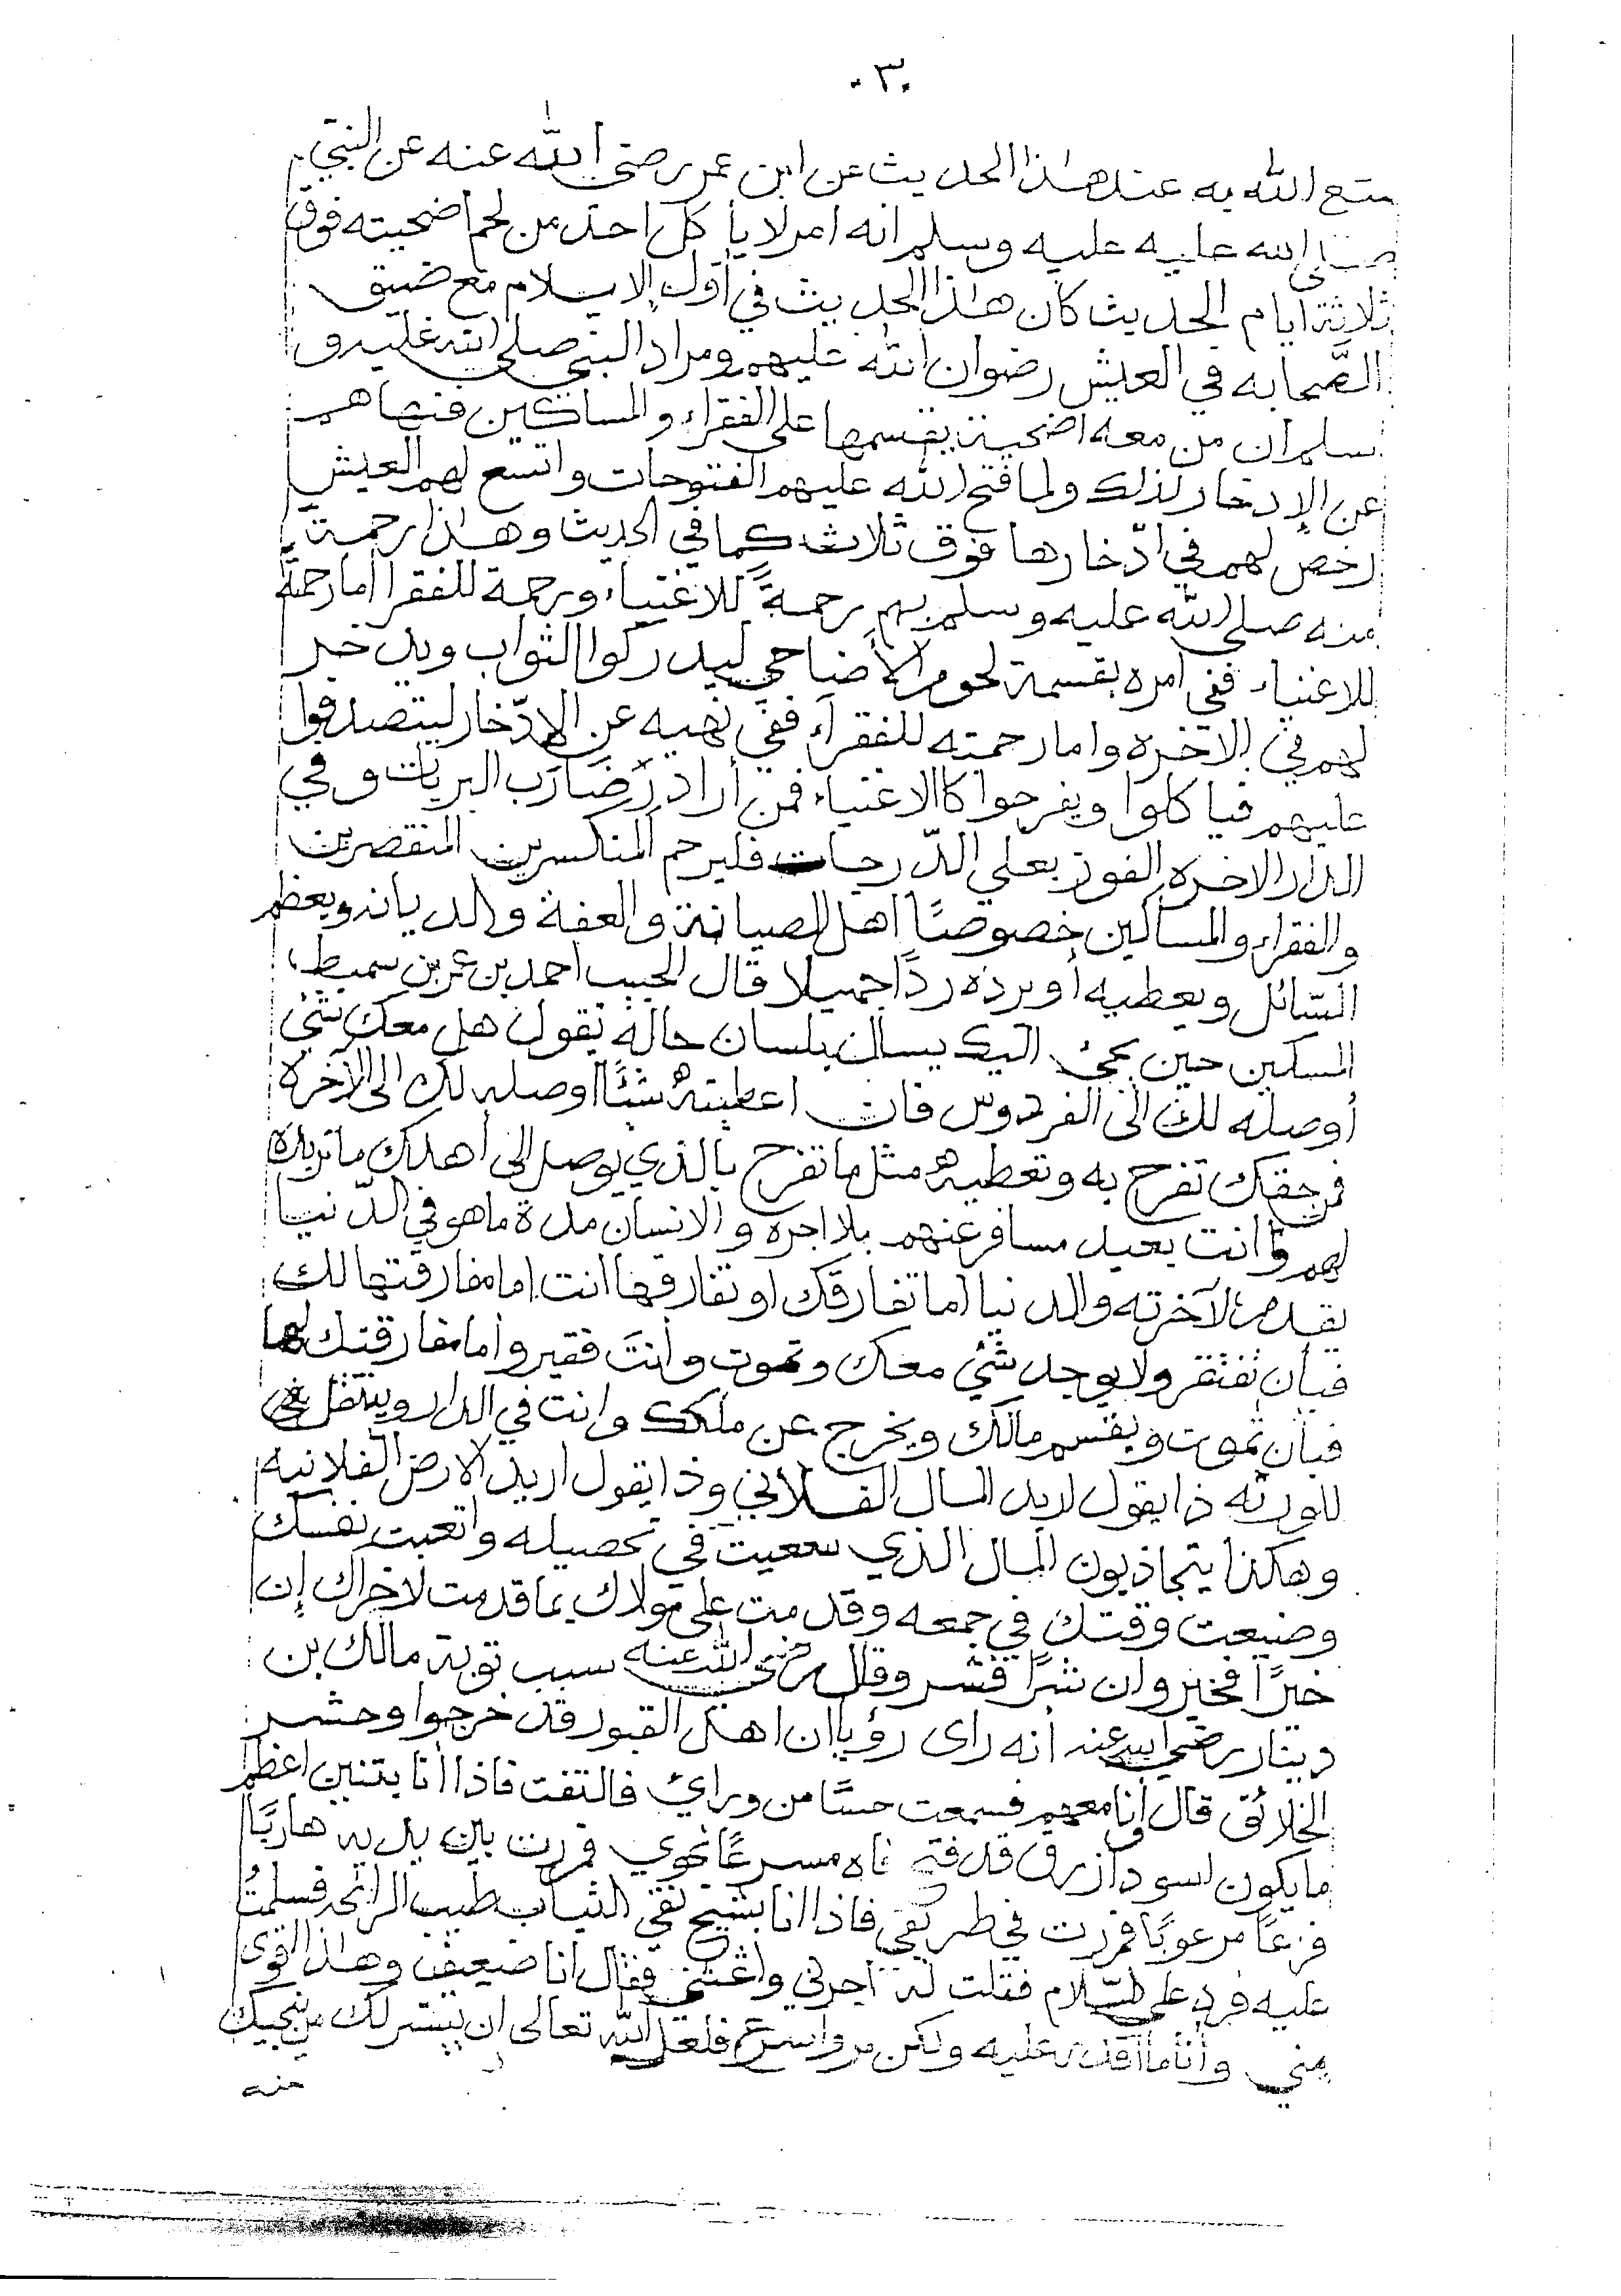 ٣٠
متع الله به عند هذا الحديث عن ابن عمر رضي الله عنه عن النبي
صلى الله عليه عليه وسلم انه امر لا يأكل احد من لحم اضحيته فوق
ثلاثة ايام الحديث كان هذا الحديث في أول الإسلام مع ضيق
الصَّحابه في العيش رضوان الله عليهم ومراد النبي صلى الله عليه و
سلم ان من معه اضحية يقسمها على الفقراء والمساكين فنهاهم
عن الإدخار لذلك ولما فتح الله عليهم الفتوحات واتسع لهم العيش
رخص لهم في ادّخارها فوق ثلاث كما في الحديث وهذا رحمة
منه صلى الله عليه وسلم بهم رحمةً للاغنياء ورحمة للفقرا أما رحمة
للاغنياء ففي امره بقسمة لحوم الأضاحي ليدركوا الثواب ويدخر
لهم في الآخره واما رحمته للفقرآء ففي نهيه عن الإدّخار ليتصدقوا
عليهم فيأكلوا ويفرحوا كالاغنياء فمن أراد رضا رب البريات وفي
الدار الاخره الفوز بعلي الدّرجات فليرحم المنكسرين المنقصرين
والفقراء والمساكين خصوصًا اهل الصيانة والعفة والديانه ويعظم
السّائل ويعطيه أو يرده ردًا جميلا قال الحبيب احمد بن عمر بن سميط
المسكين حين يجئ اليك يسال بلسان حاله يقول هل معك شئ
أوصله لك الى الفردوس فان اعطيته شئًا اوصله لك الى الآخرة
فمن حقك تفرح به وتعطيه مثل ما تفرح بالذي يوصل الى أهلك ما تريده
لهم وانت بعيد مسافر عنهم بلا اجره والانسان مدة ما هو في الدّنيا
يقدم لآخرته والدنيا اما تفارقك او تفارقها انت اما مفارقتها لك
فبأن تفتقر ولا يوجد شئي معك وتموت وأنتَ فقير وأما مفارقتك لها
فبأن تموت ويقسم مالك ويخرج عن ملكك وانت في الدار وينتقل
للورثه ذا يقول اريد المال الفلاني وذا يقول اريد الارض الفلانيه
وهكذا يتجاذبون المال الذي سعيت في تحصيله واتعبت نفسك
وضيعت وقتك في جمعه وقدمت على مولاك بما قدمت لاخراك إن
خيرًا فخير وان شرًا فشر وقال رضي الله عنه سبب توبة مالك بن
دينار رضي الله عنه أنه راى رؤيا ان اهل القبور قد خرجوا وحشر
الخلائق قال وأنا معهم فسمعت حسًّا من ورائي فالتفت فاذا أنا بتنين اعظم
ما يكون اسود ازرق قد فتح فاه مسرعًا نحوي فمررت بين يديه هاربًا
فزعًا مرعوبًا فمررت في طريقي فاذا انا بشيخ نقي الثياب طيب الرائحه فسلمتُ
عليه فرد علي السّلام فقلت له اجرني واغثني فقال انا ضعيف وهذا اقوى
مني وأنا ما اقدر عليه ولكن مر واسرع فلعل الله تعالى ان ييسر لك من ينجيك
منه